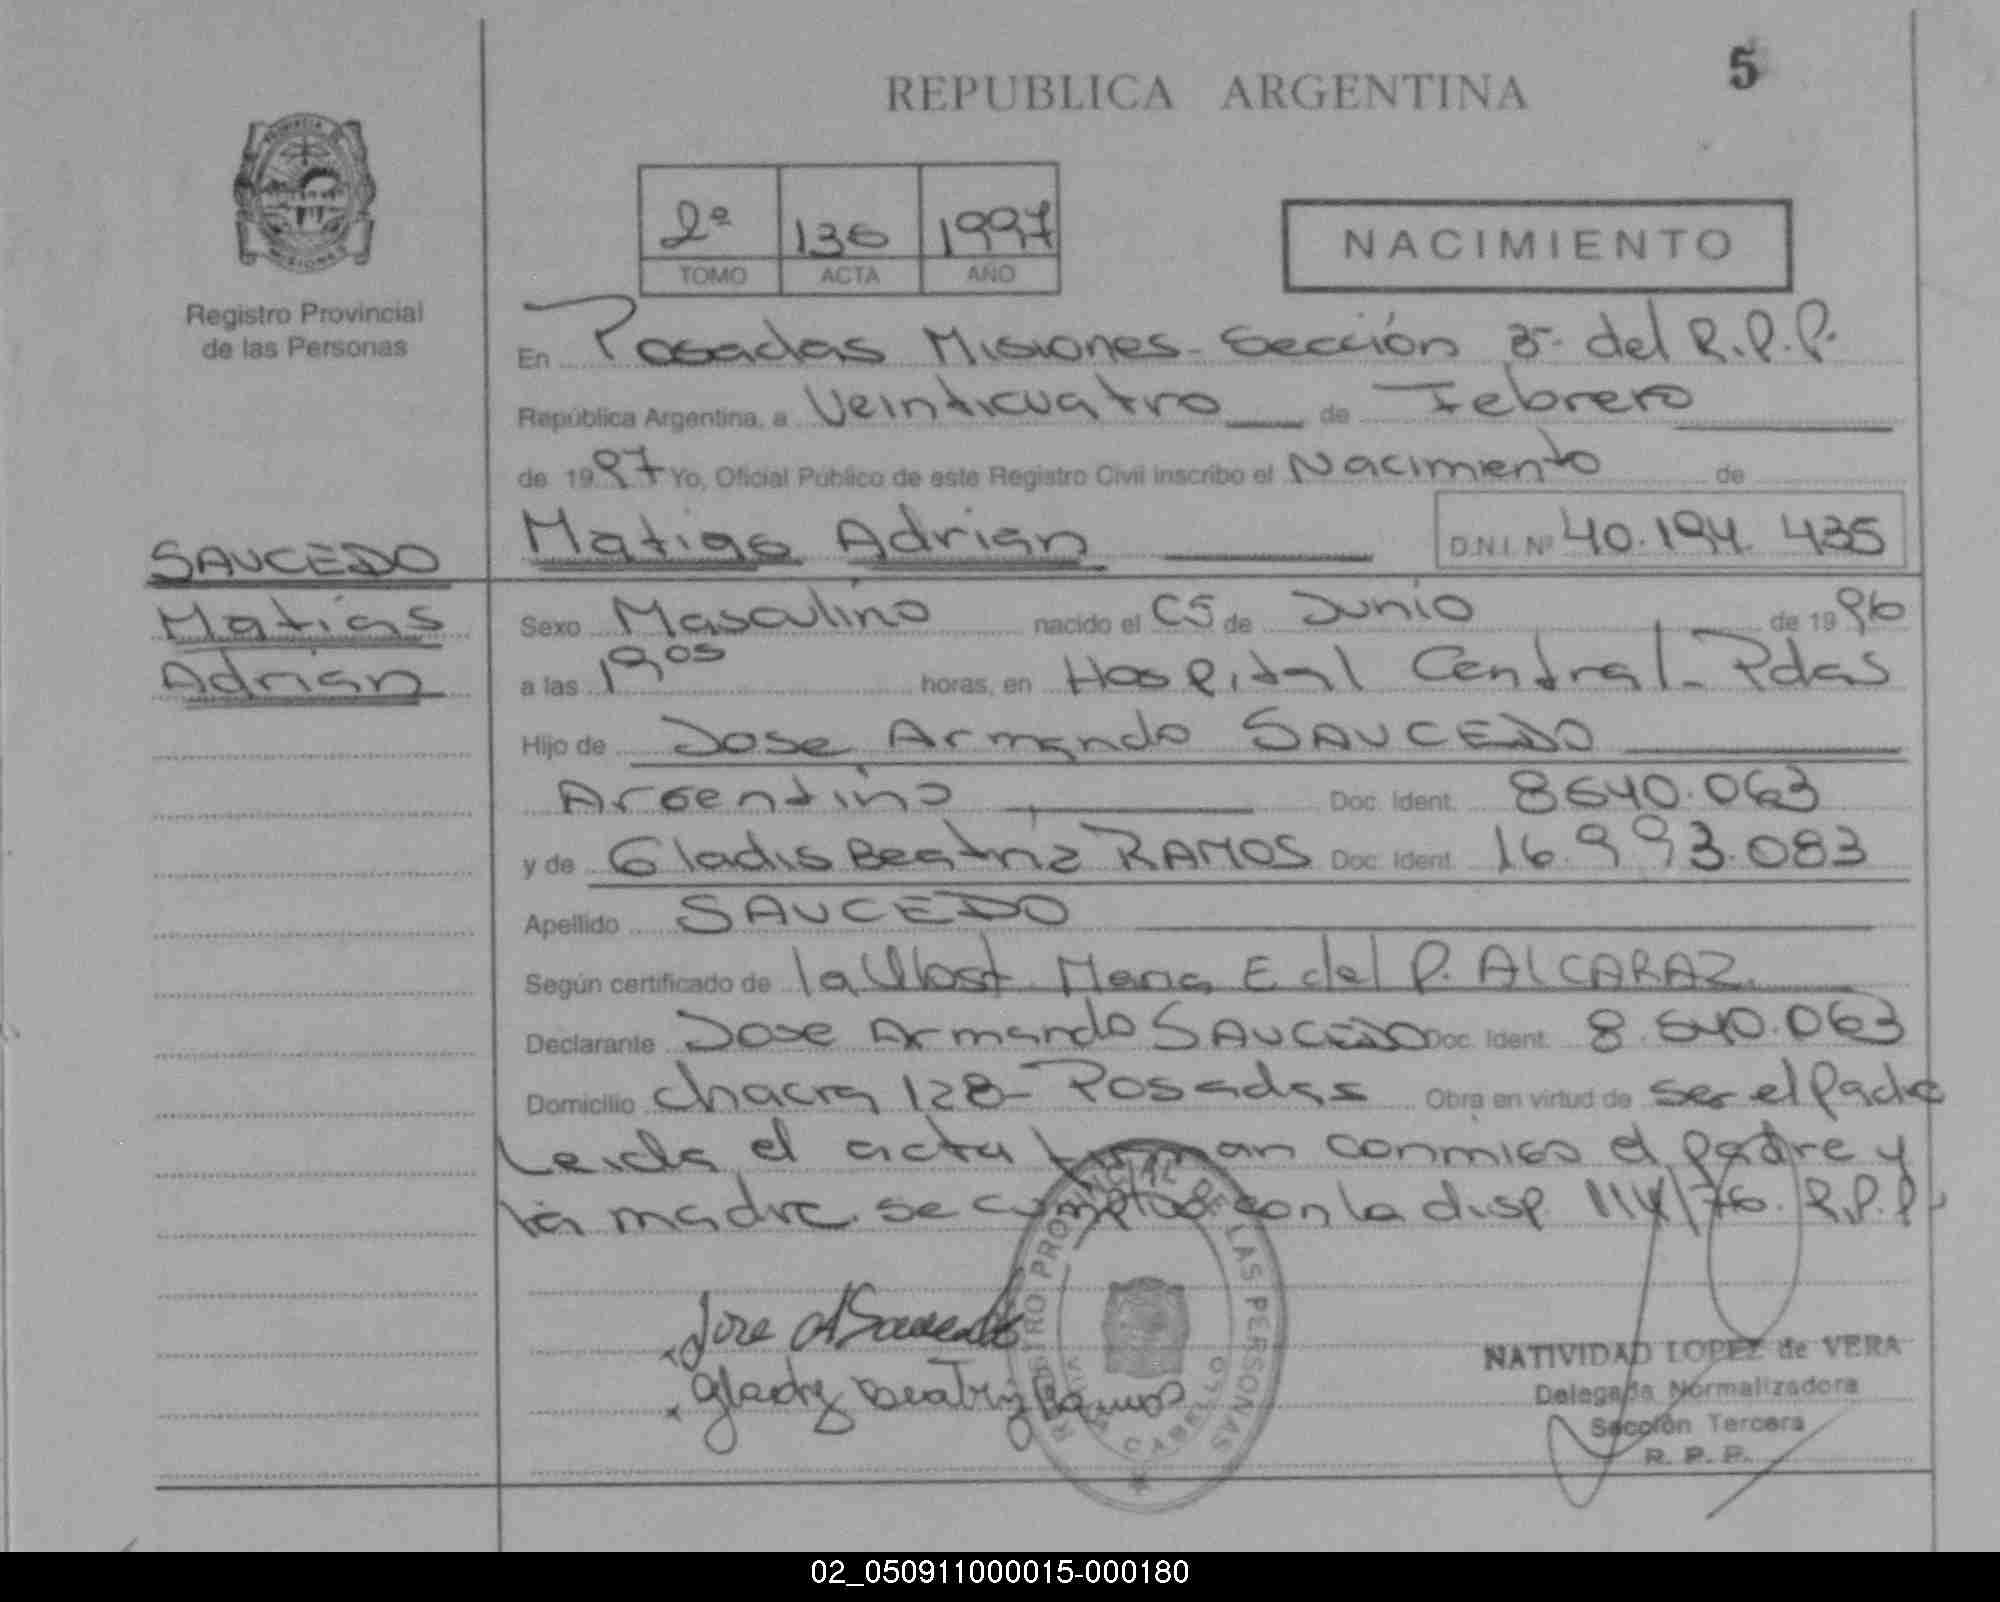 5
REPUBLICA ARGENTINA
PROVINCIA DE MISIONES
Registro Provincial
de las Personas
2º 136 1997
TOMO ACTA AÑO
NACIMIENTO
En Posadas Misiones - Sección 3ª del R.P.P.
República Argentina, a Veinticuatro de Febrero
de 1997 Yo, Oficial Público de este Registro Civil inscribo el Nacimiento de
Matias Adrian D.N.I. Nº 40.194.435
SAUCEDO
Matías
Adrian
Sexo Masculino nacido el 05 de Junio de 1996
a las 19 05 horas, en Hospital Central - Pdas
Hijo de Jose Armando SAUCEDO
Argentino Doc. Ident. 8640.063
y de Gladis Beatriz RAMOS Doc. Ident. 16.993.083
Apellido SAUCEDO
Según certificado de la Obst Maria E del P. ALCARAZ
Declarante Jose Armando SAUCEDO Doc. Ident. 8.640.063
Domicilio chacra 128 - Posadas Obra en virtud de ser el Padre
Leida el acta firman conmigo el padre y
la madre. se cumplió con la disp. 114/76. R.P.P.
Jose A Saucedo
Gladiz Beatriz Ramos
REGISTRO PROVINCIAL DE LAS PERSONAS
VILLA CABELLO
NATIVIDAD LOPEZ de VERA
Delegada Normalizadora
Sección Tercera
R. P. P.
02_050911000015-000180